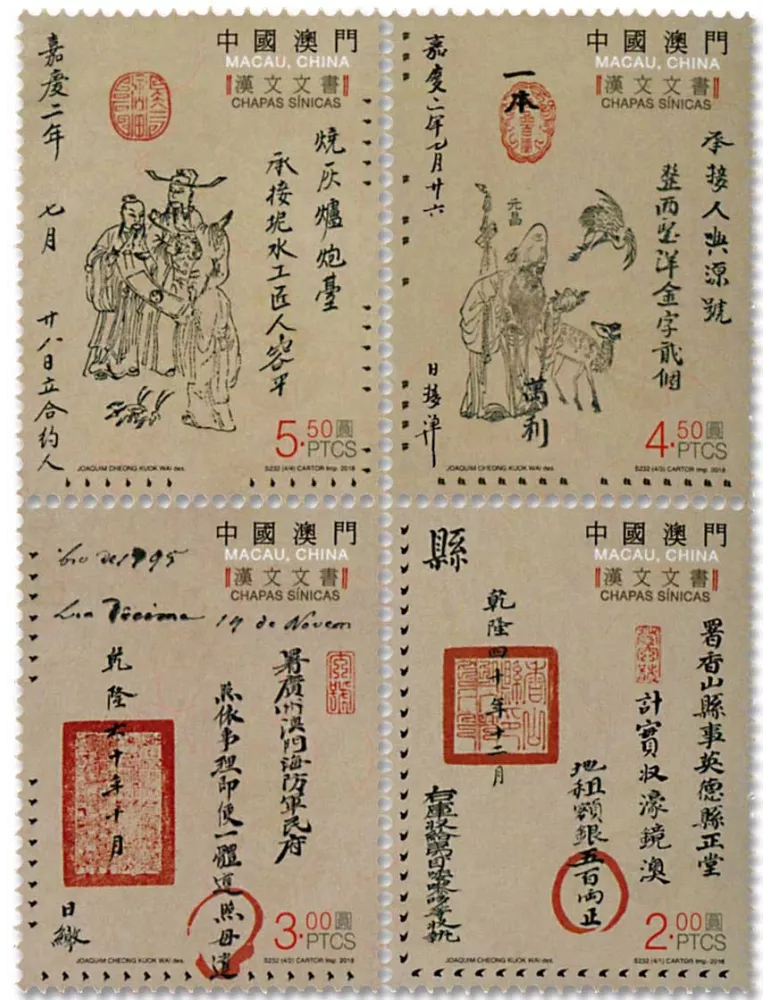 中國澳門
MACAU, CHINA
漢文文書
CHAPAS SÍNICAS
燒灰爐炮臺
承接坭水工匠人容平
嘉慶二年 七月 廿八日立合約人
5.50 圓
PTCS
JOAQUIM CHEONG KUOK WAI des.
S232 (4/4) CARTOR Imp. 2018
中國澳門
MACAU, CHINA
漢文文書
CHAPAS SÍNICAS
承接人興源號
整西竺洋金字貳個
一本
元昌
萬利
嘉慶二年七月廿六
日接單
4.50 圓
PTCS
JOAQUIM CHEONG KUOK WAI des.
S232 (4/3) CARTOR Imp. 2018
中國澳門
MACAU, CHINA
漢文文書
CHAPAS SÍNICAS
bro de 1795
Decima 19 de Novem
署廣州澳門海防軍民府
照依事理即便一體遵照毋違
乾隆六十年十月
日繳
3.00 圓
PTCS
JOAQUIM CHEONG KUOK WAI des.
S232 (4/2) CARTOR Imp. 2018
中國澳門
MACAU, CHINA
漢文文書
CHAPAS SÍNICAS
縣
署香山縣事英德縣正堂
計實收濠鏡澳
地租額銀五百両正
乾隆四十年十二月
2.00 圓
PTCS
JOAQUIM CHEONG KUOK WAI des.
S232 (4/1) CARTOR Imp. 2018